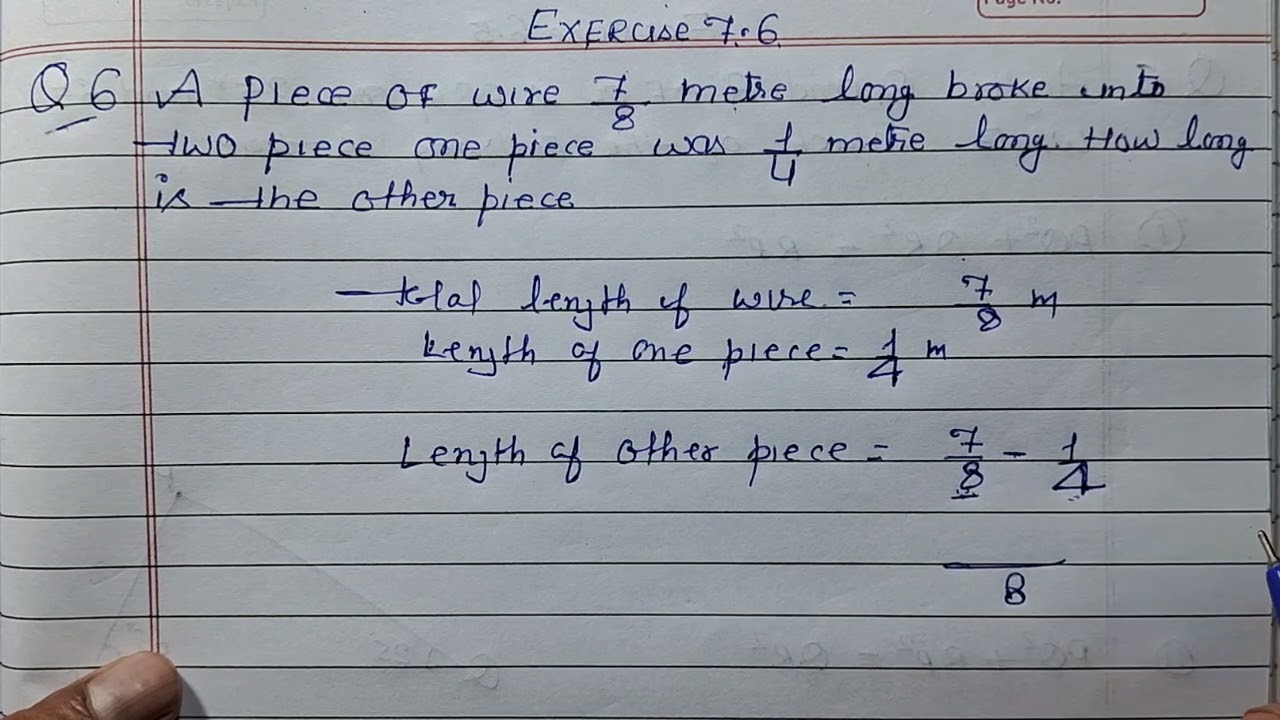 Page No.
Exercise 7.6
Q 6 A piece of wire 7/8 metre long broke into
two piece one piece was 1/4 metre long. How long
is the other piece
total length of wire = 7/8 m
Length of one piece = 1/4 m
Length of other piece = 7/8 - 1/4
8